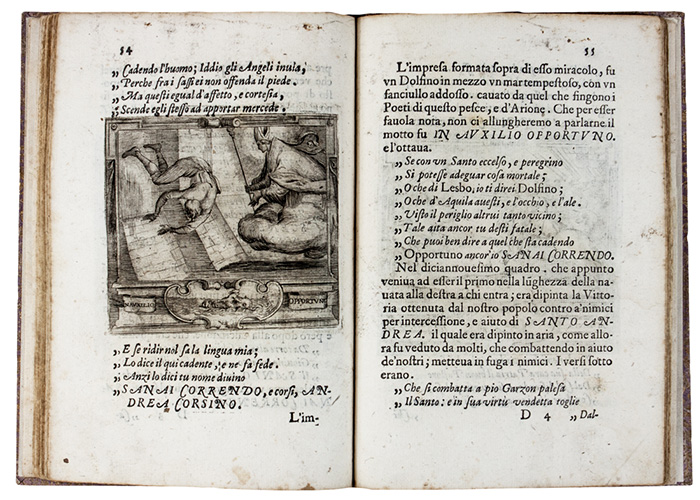 54
„ Cadendo l'huomo; Iddio gli Angeli inuia,
„ Perche fra i sassi ei non offenda il piede.
„ Ma questi egual d'affetto, e cortesia,
„ Scende egli stesso ad apportar mercede.
IN AVXILIO OPPORTVNO
„ E se ridir nol sa la lingua mia;
„ Lo dice il qui cadente, e ne fa fede.
„ Anzi lo dici tu nome diuino
„ SANAI CORRENDO, e corsi, AN-
DREA CORSINO.
L'im-
55
L'impresa formata sopra di esso miracolo, fu
vn Dolfino in mezzo vn mar tempestoso, con vn
fanciullo addosso. cauato da quel che fingono i
Poeti di questo pesce, e d'Arione. Che per esser
fauola nota, non ci allungheremo a parlarne. il
motto fu IN AVXILIO OPPORTVNO.
e l'ottaua.
„ Se con vn Santo eccelso, e peregrino
„ Si potesse adeguar cosa mortale;
„ O che di Lesbo, io ti direi Dolfino;
„ O che d'Aquila auesti, e l'occhio, e l'ale.
„ Visto il periglio altrui tanto vicino;
„ Tale aita ancor tu desti fatale;
„ Che puoi ben dire a quel che sta cadendo
„ Opportuno ancor'io SANAI CORRENDO.
Nel diciannouesimo quadro. che appunto
veniua ad esser il primo nella lũghezza della na-
uata alla destra a chi entra; era dipinta la Vitto-
ria ottenuta dal nostro popolo contro a'nimici
per intercessione, e aiuto di SANTO AN-
DREA. il quale era dipinto in aria, come allo-
ra fu veduto da molti, che combattendo in aiuto
de'nostri; metteua in fuga i nimici. I versi sotto
erano.
„ Che si combatta a pio Garzon palesa
„ Il Santo: e in sua virtù vendetta toglie
D 4 „ Dal-